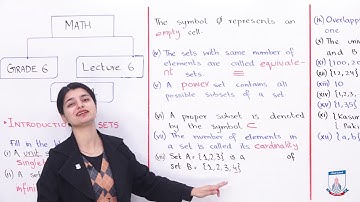 MATH
GRADE 6
Lecture 6
INTRODUCTION
SETS
Fill in the
(i) A unit
singl
(ii) A se
infin
The symbol Ø represents an
empty cell.
(iv) The sets with same number of
elements are called equivale-
nt sets. =
(v) A power set contains all
possible subsets of a set.
(vi) A proper subset is denoted
by the symbol ⊂
(vii) The number of elements in
a set is called its cardinality
(viii) Set A = {1,2,3} is a of
set B = {1, 2, 3, 4}
(ix) Overlap
one
(x) The un
and B
(xi) {100, 20
(xii) {12, 24
(xiii) 10
{1, 21
{1, 3, 5}
{Kasur
Paki
(xii) {a, b